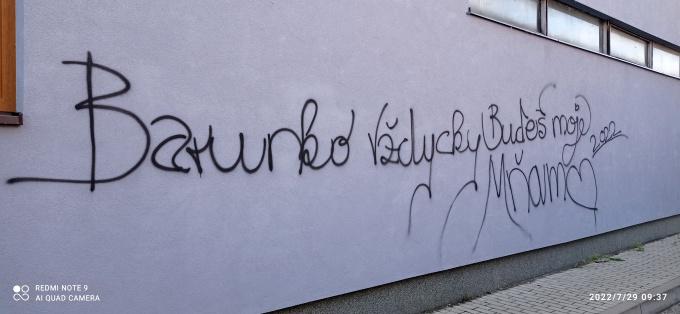 Barunko vždycky Budeš moje 2022
Mňamo
REDMI NOTE 9
AI QUAD CAMERA
2022/7/29 09:37